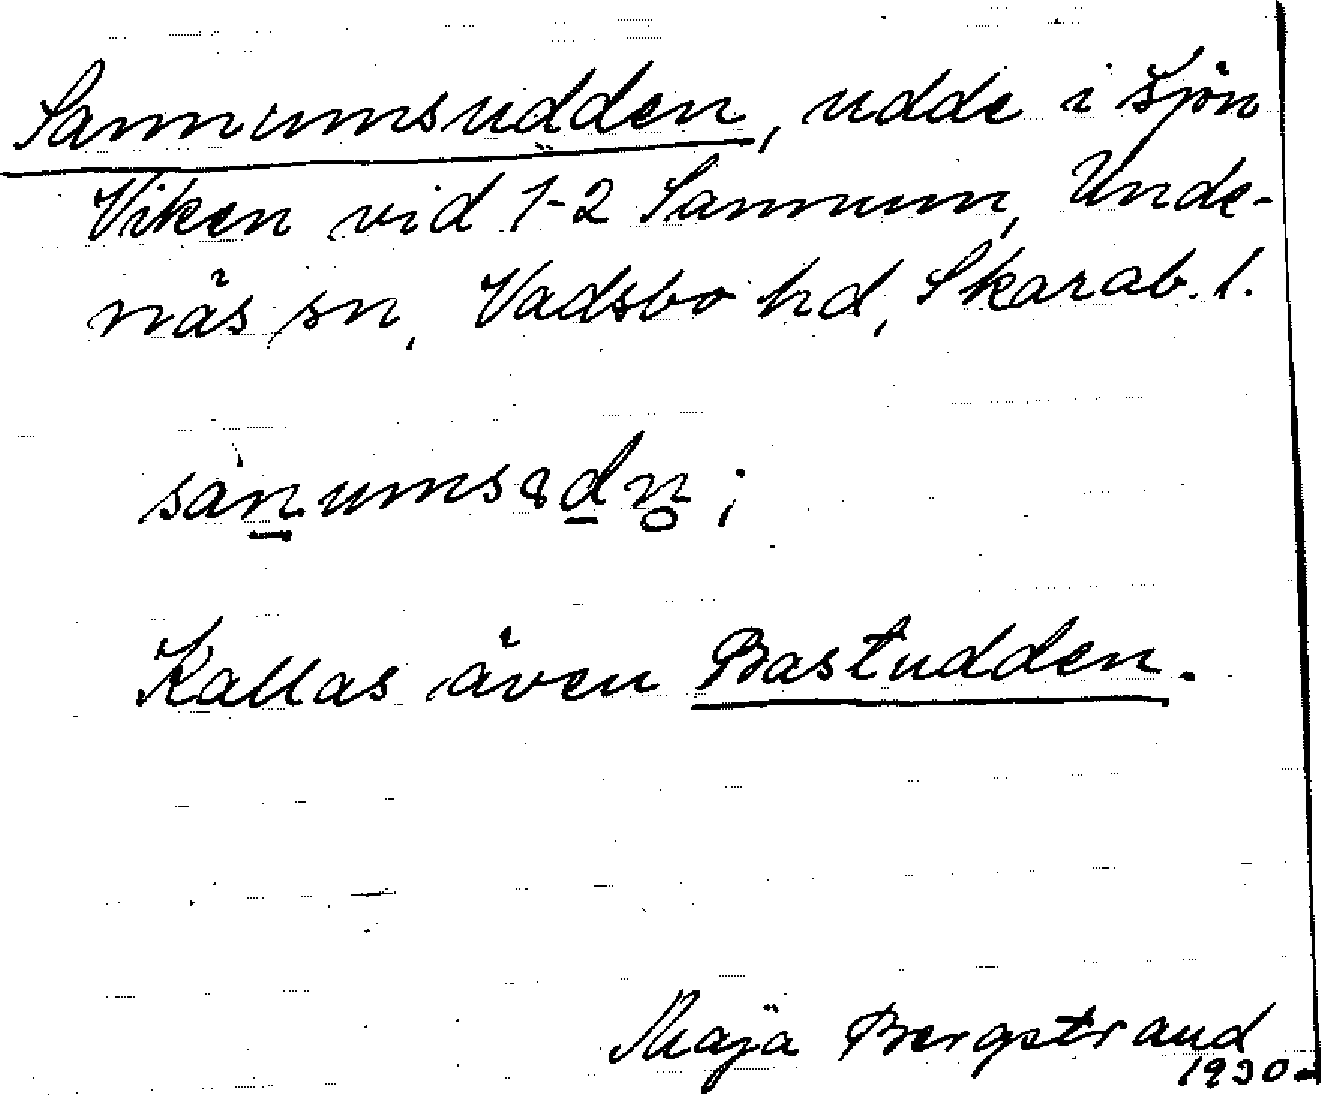 Sannumsudden, udde i sjön
Viken vid 1-2 Sannum, Unde-
näs sn, Vadsbo hd, Skarab. l.
Kallas även Bastudden.
Maja Bergstrand
1930